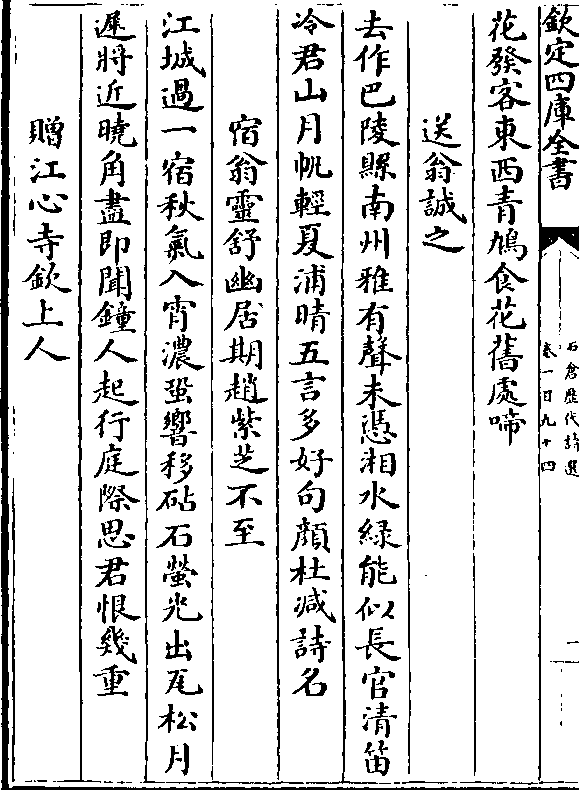 欽定四庫全書
石倉歷代詩選
卷一百九十四
二
花發客東西青鳩食花舊處啼
送翁誠之
去作巴陵縣南州雅有聲未憑湘水綠能似長官清笛
冷君山月帆輕夏浦晴五言多好句顔杜減詩名
宿翁靈舒幽居期趙紫芝不至
江城過一宿秋氣入宵濃蛩響移砧石螢光出瓦松月
遲將近曉角盡即聞鐘人起行庭際思君恨幾重
贈江心寺欽上人